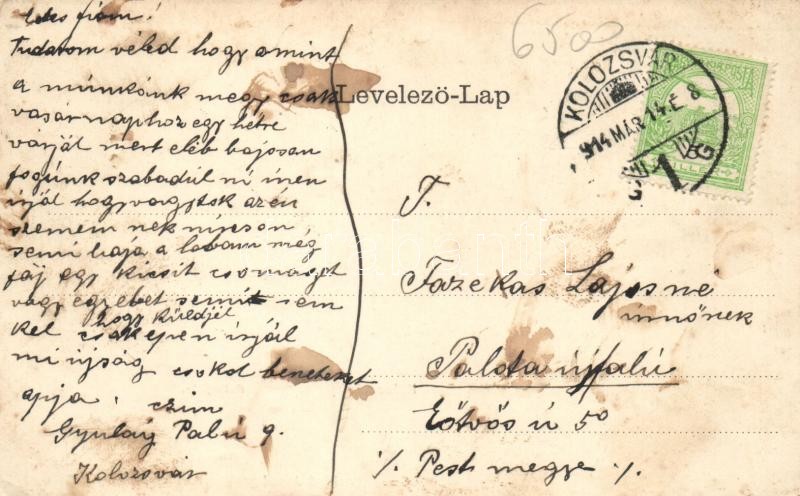 édes fiam!
Tudatom véled hogy amint
a munkánk megy csak
vasárnaphoz egy hétre
várját mert eléb bajosan
fogunk szabadul ni inen
irjál hogy vagytok azén
szemem nek nincsen
semi baja a lovam még
fáj egy kicsit csomagot
vagy egyebet semit sem
kel hogy küldjél
csak épen irjál
mi ujság csokol beneteket
apja. czim
Gyulay Palú 9.
Kolozsvár
6500
Levelezö-Lap
KOLOZSVÁR
914 MÁR. 14. É 8
1
T.
Fazekas Lajosné
Palota ujfalú
Eötvös ú 50
Pest megye